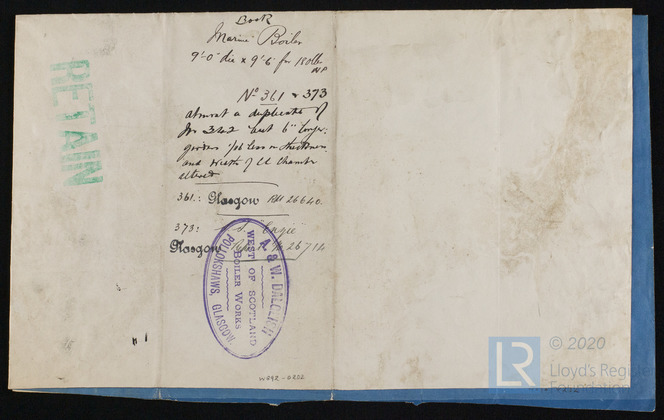 Book
Marine Boiler
9'-0" dia x 9'-6" for 180 lbs
WP
No 361 & 373
almost a duplicate of
No 342 but 6" longer
less in thickness
and width of CC Chamber
altered
361: Glasgow Rpt 26640.
373:
Glasgow 26714
A. & W. DALGLISH
WEST OF SCOTLAND
BOILER WORKS
POLLOKSHAWS, GLASGOW.
RETAIN
W692-0202
© 2020
LR
Lloyd's Register
Foundation